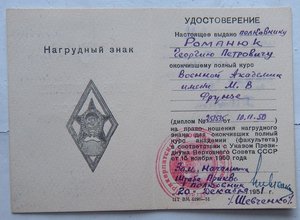 Нагрудный знак
УДОСТОВЕРЕНИЕ
Настоящее выдано полковнику
Романюк
Георгию Петровичу
окончившему полный курс
Военной Академии
имени М. В
Фрунзе
(диплом № от 10.11.50)
на право ношения нагрудного
знака для окончивших полный
курс академии
в соответствии с Указом Прези-
диума Верховного Совета СССР
от 15 ноября 1950 года
Зам. Начальник
Штаба
полковник
20 Декабря 1951 г.
/Шевченко/